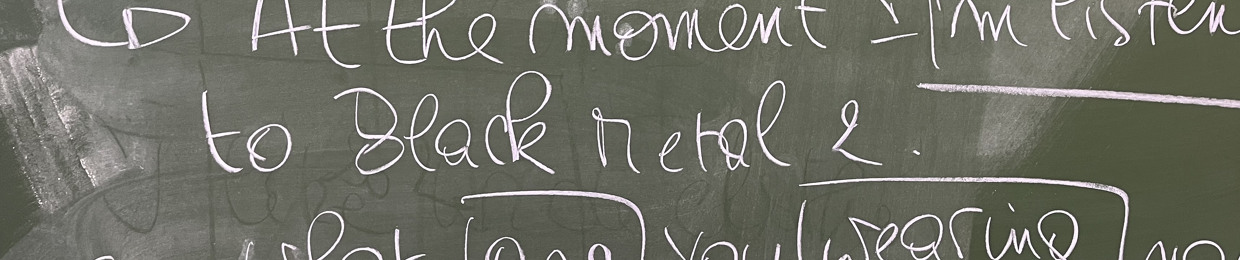 At the moment I'm listen
to Black Metal 2.
what are you wearing